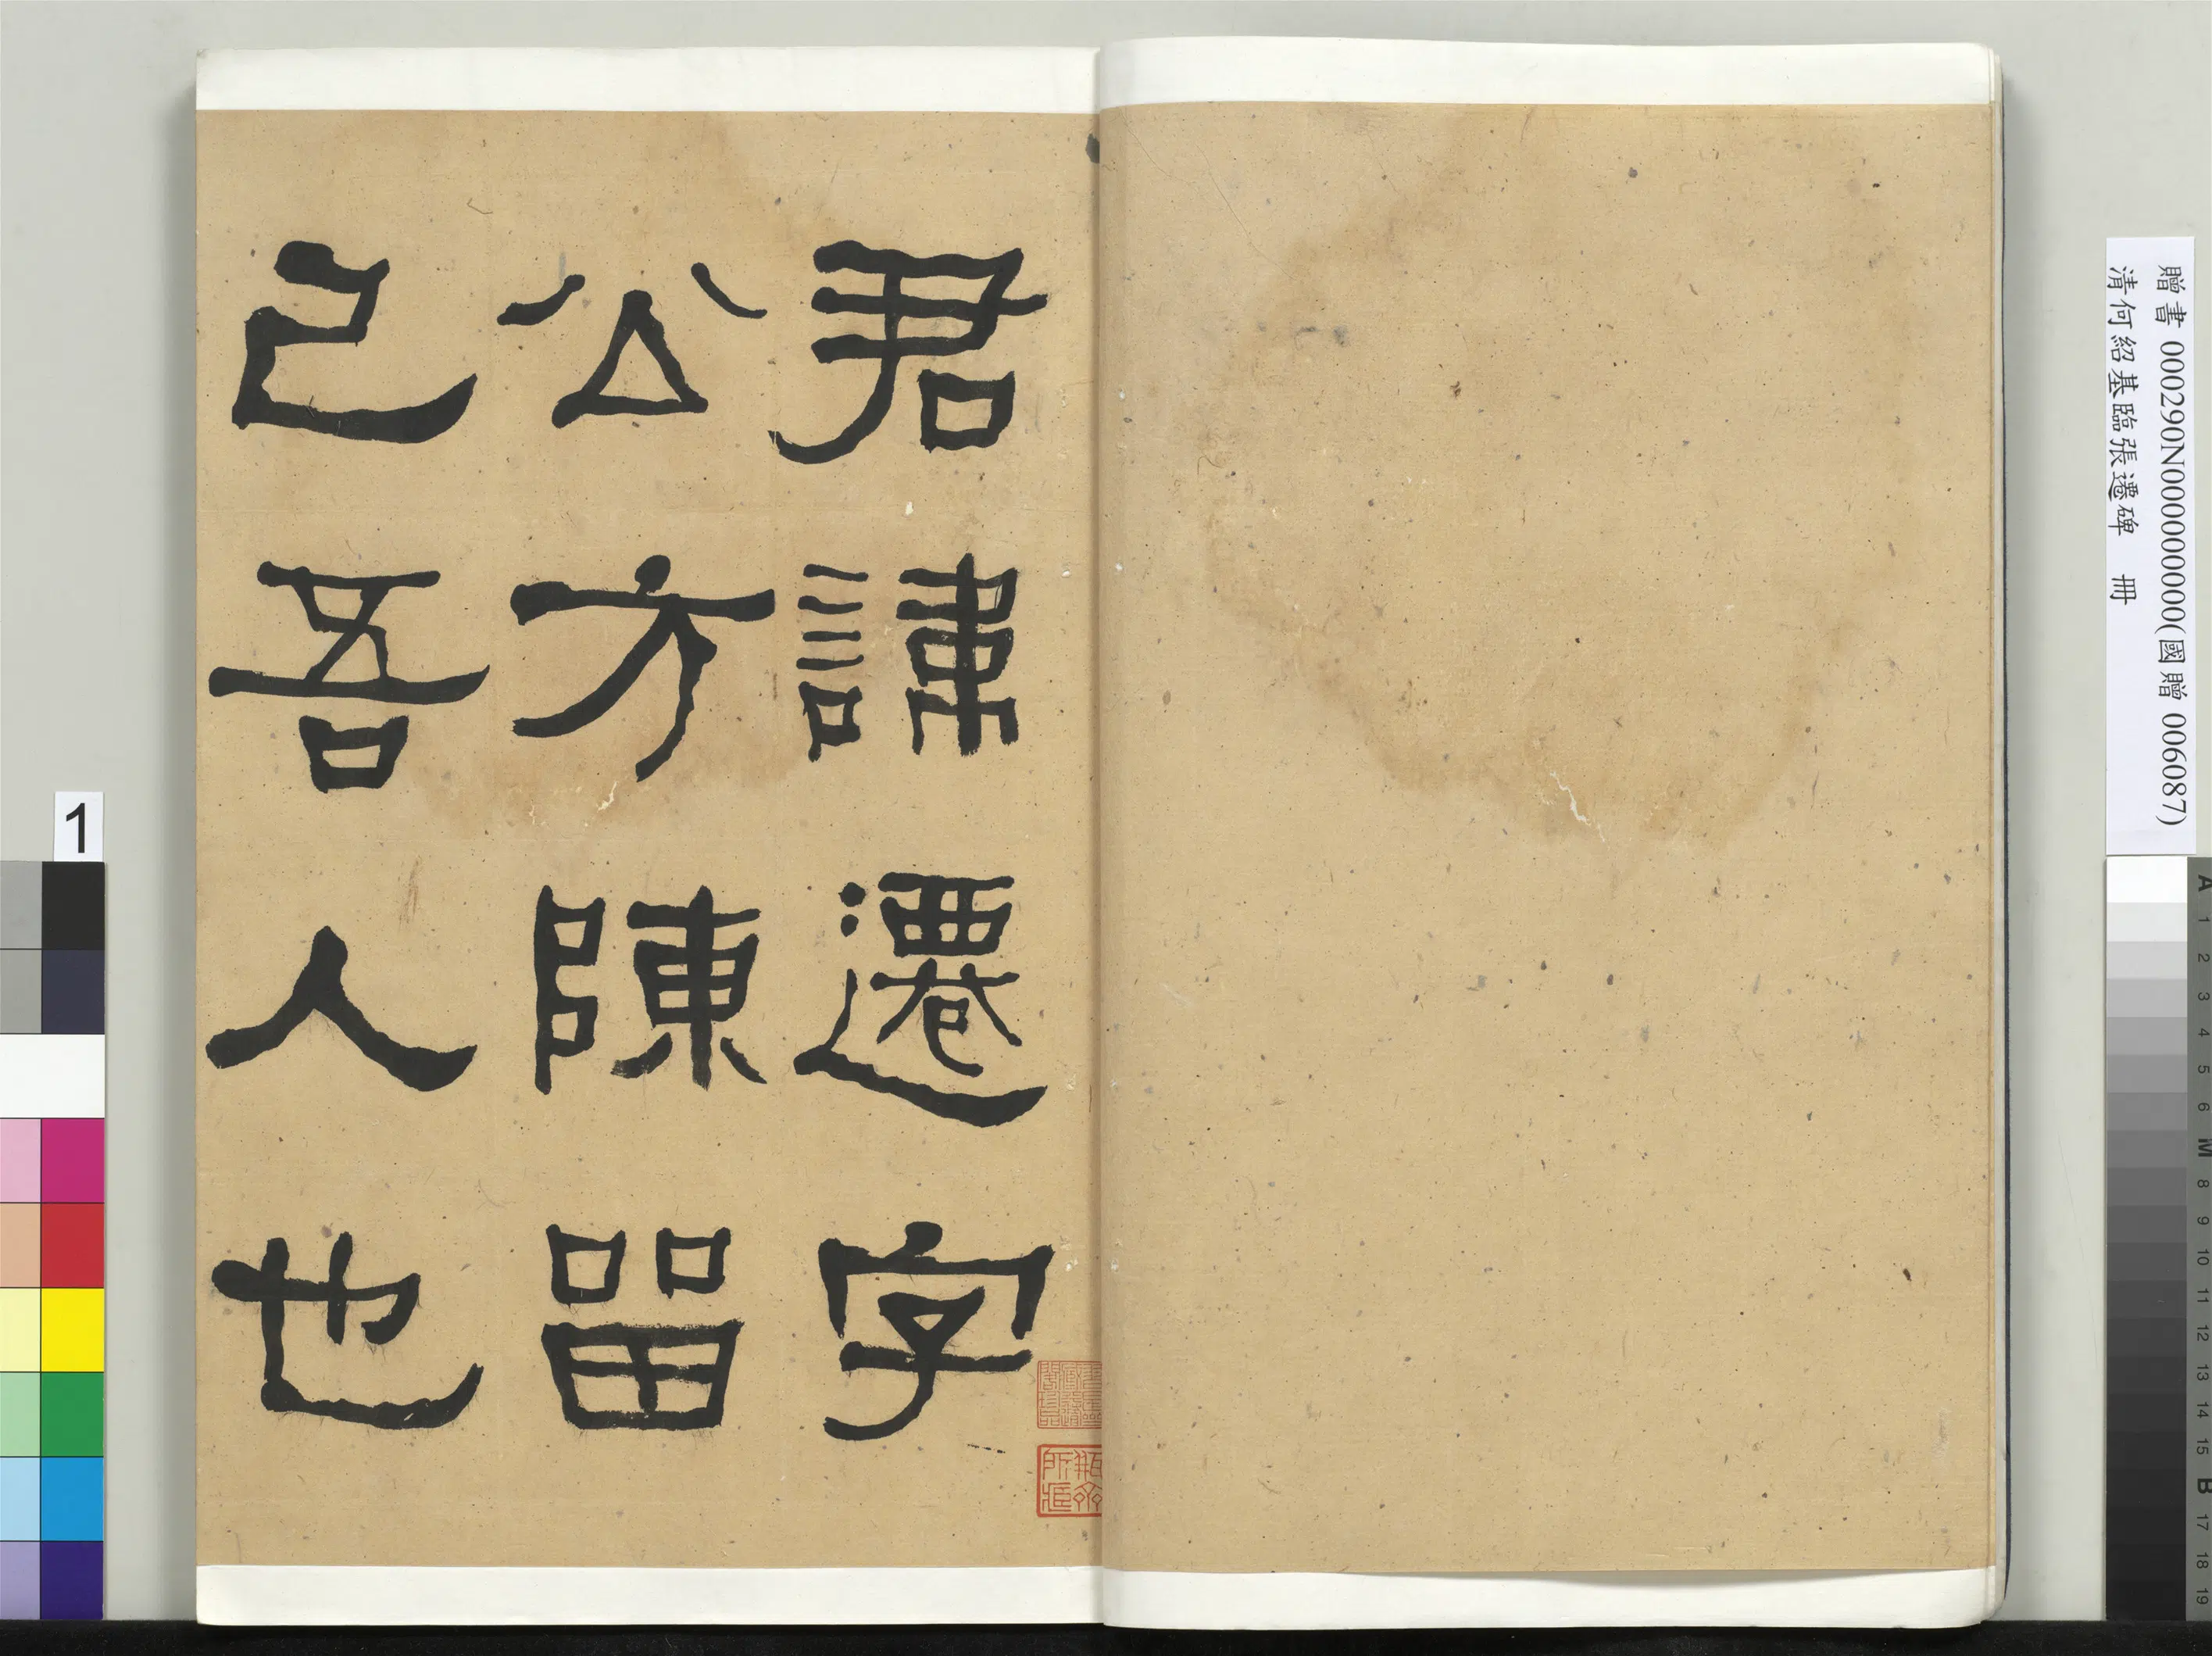 贈書 000290N000000000(國贈 006087)
清何紹基臨張遷碑 冊
君諱遷字
公方陳留
己吾人也
1
A
1
2
3
4
5
6
M
8
9
10
11
12
13
14
15
B
17
18
19